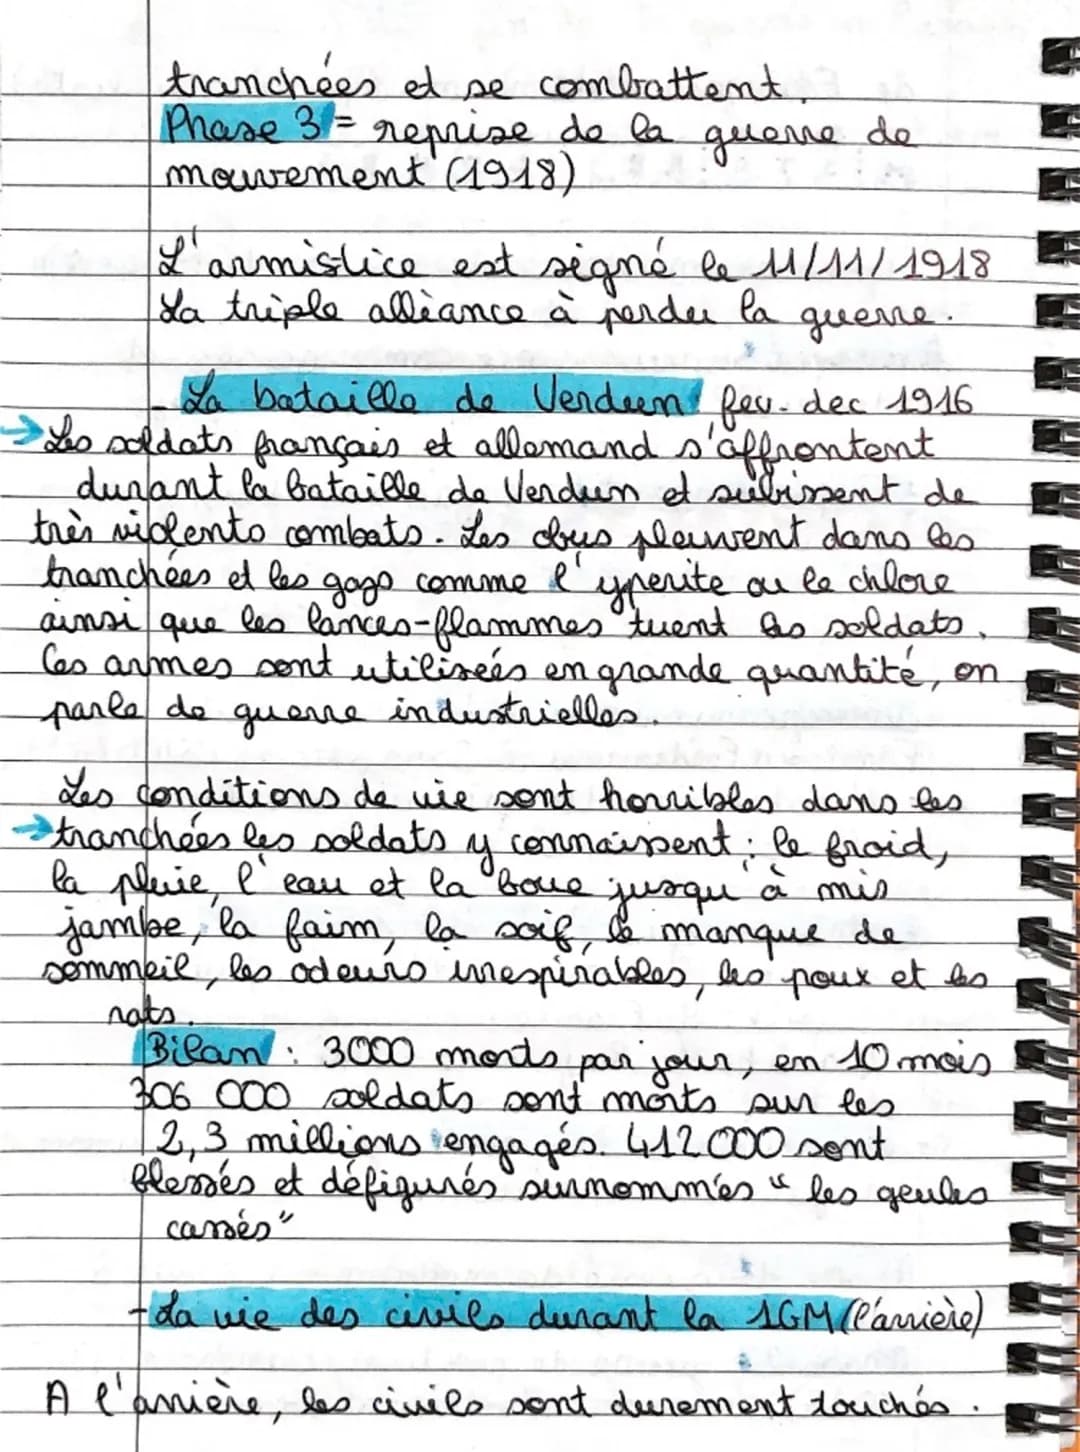 tranchées et se combattent.
Phase 3 = reprise de la guerre de
mouvement (1918)
L'armistice est signé le 11/11/1918
La triple alliance à perdu la guerre.
- La bataille de Verdun fev. dec 1916
→ Les soldats français et allemand s'affrontent
durant la bataille de Verdun et subissent de
très violents combats. Les obus pleuvent dans les
tranchées et les gaps comme l'yperite ou le chlore
ainsi que les lances-flammes tuent les soldats.
Ces armes sont utilisées en grande quantité, on
parle de guerre industrielles.
Les conditions de vie sont horribles dans les
→ tranchées les soldats y connaissent : le froid,
la pluie, l'eau et la boue jusqu'à mis
jambe, la faim, la soif, le manque de
sommeil, les odeurs irrespirables, les poux et les
rats.
Bilan : 3000 morts par jour, en 10 mois
306 000 soldats sont morts sur les
2,3 millions engagés. 412 000 sont
blessés et défigurés surnommés "les geules
cassés"
- La vie des civils durant la 1GM (l'arrière)
A l'arrière, les civils sont durement touchés.